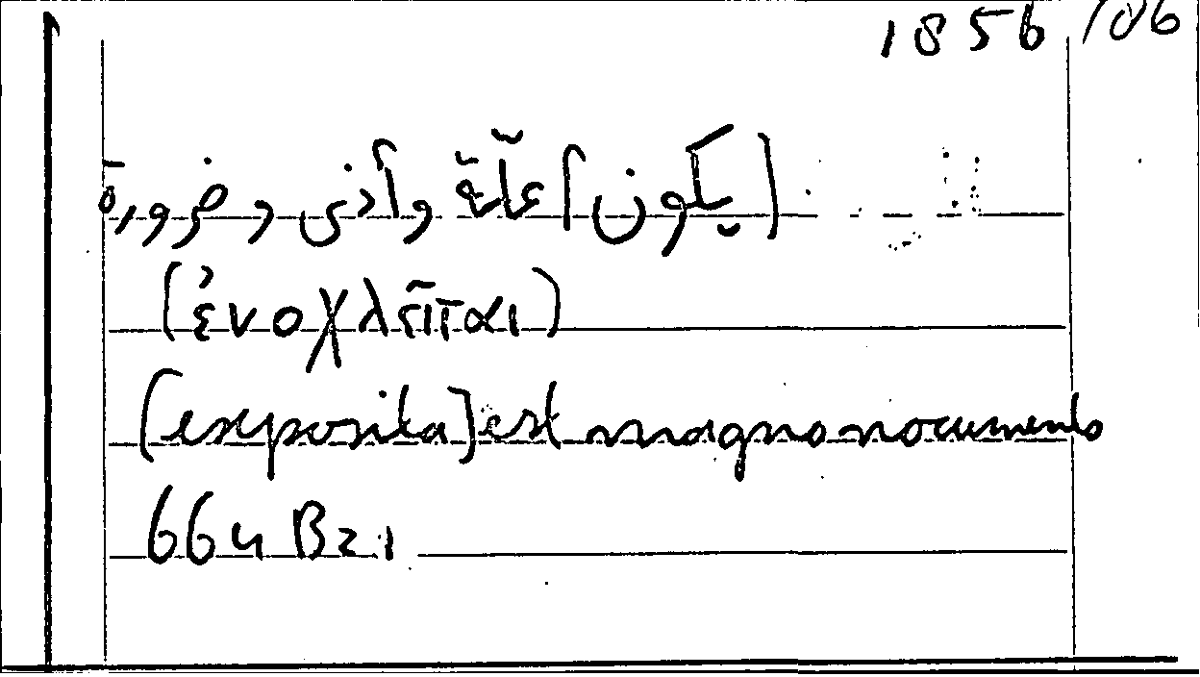 1856/106
[يكون] علّة وأذى وضرورة
(ἐνοχλεῖται)
[exposita] est magno nocumento
664 B21